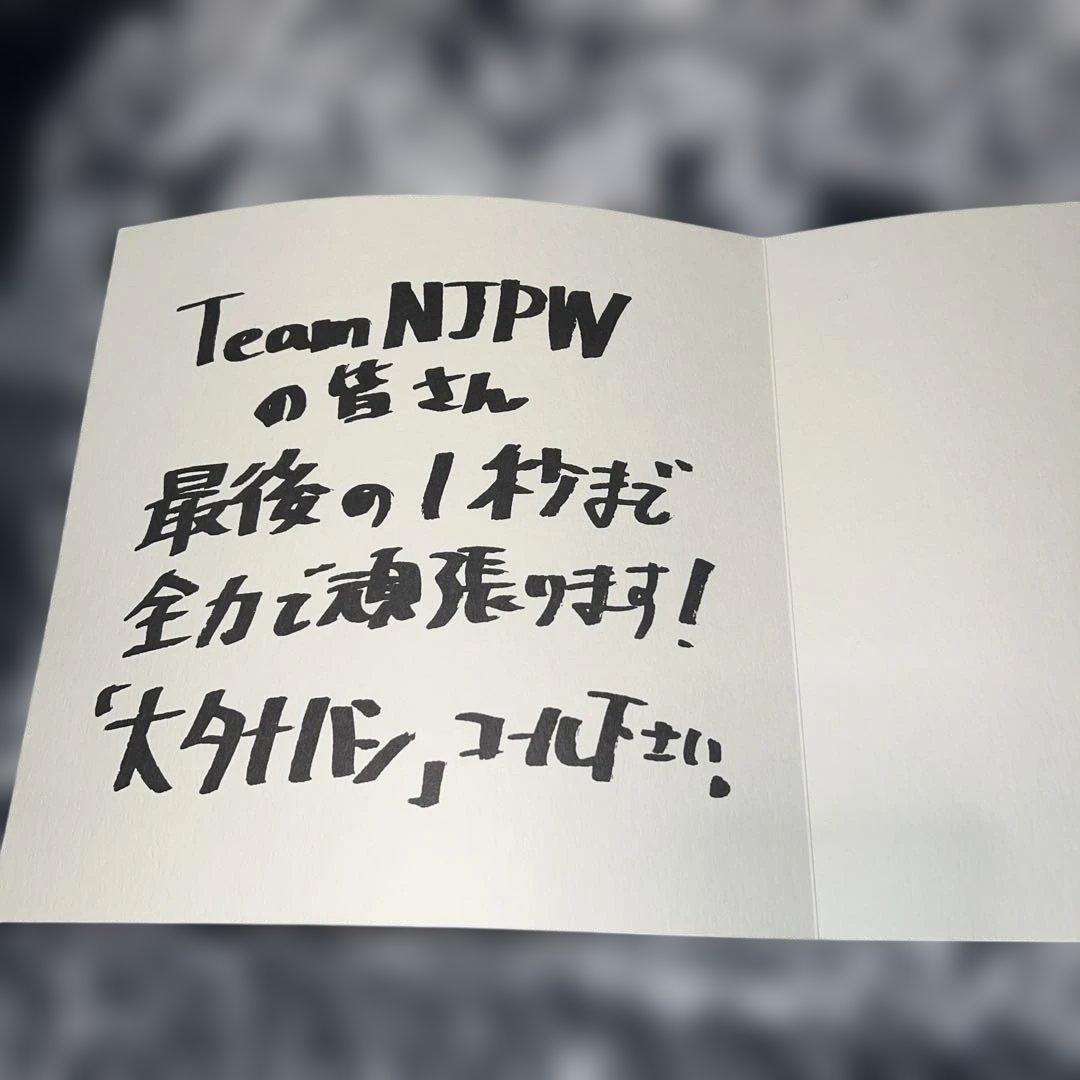 Team NJPW
の皆さん
最後の1秒まで
全力で頑張ります!
「大タナハシ」コール下さい。